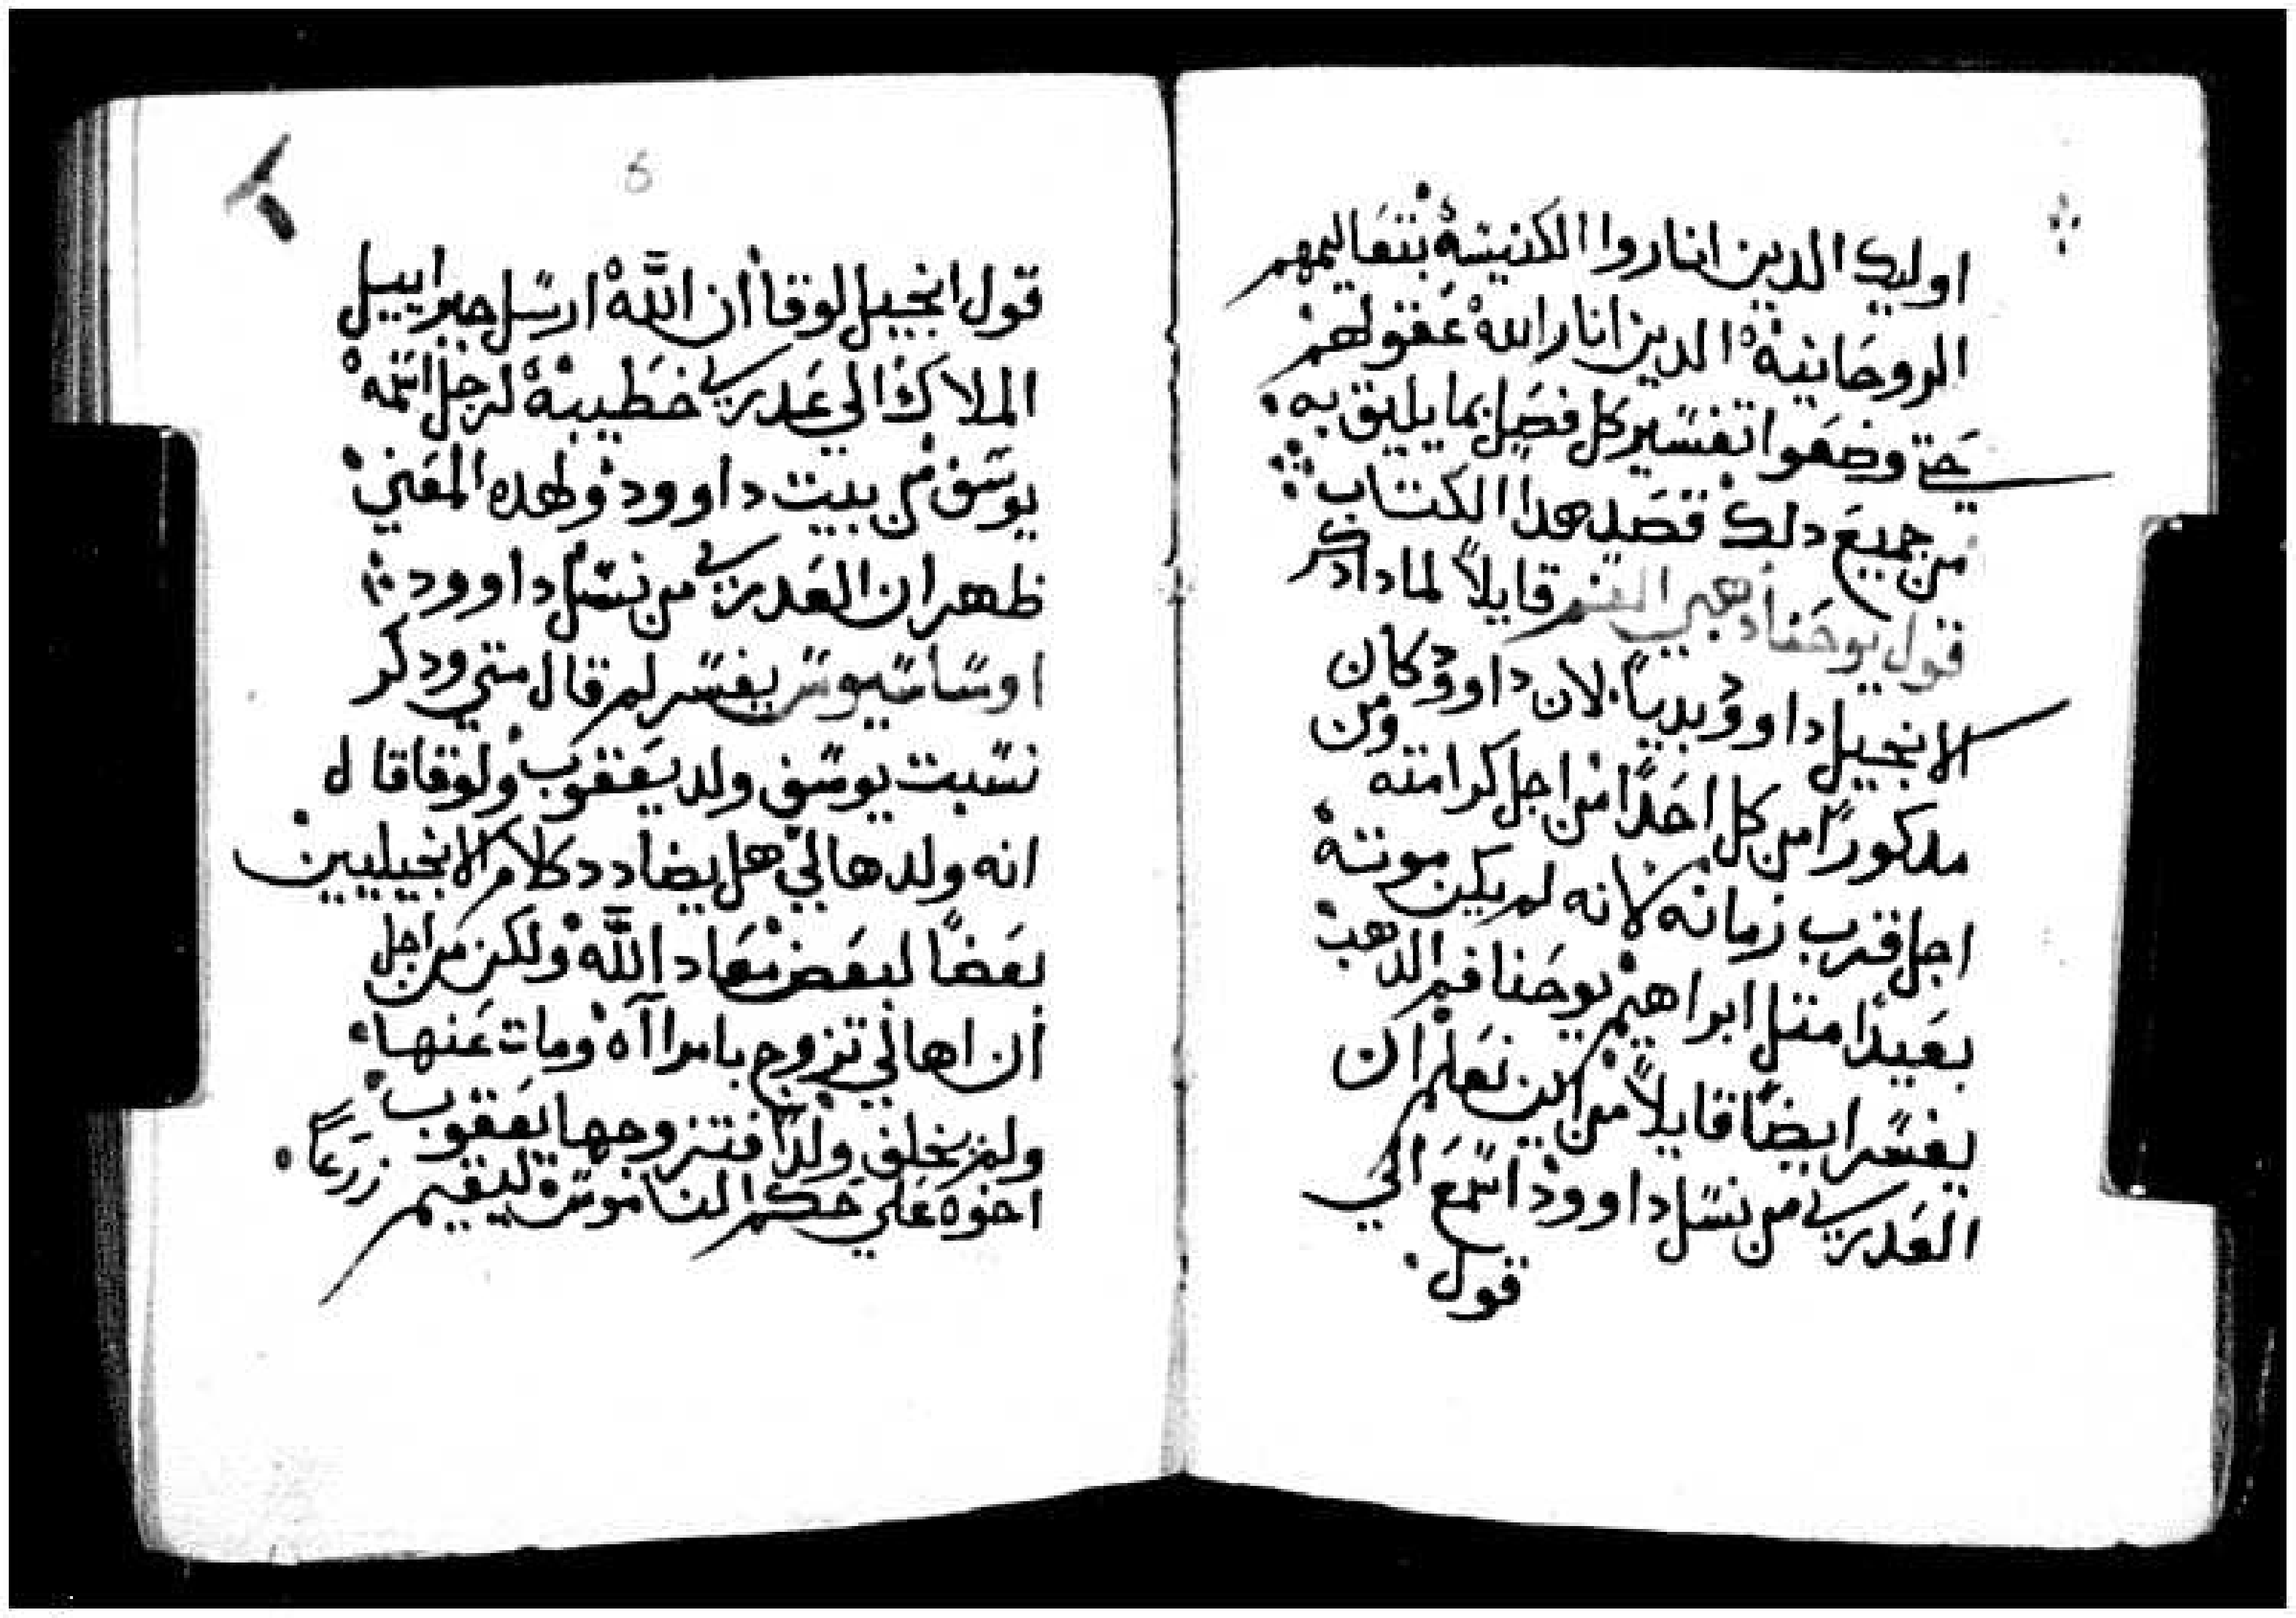 اوليك الدين اناروا الكنيسة بتعاليمهم
الروحانية الدين انار الله عقولهم
حتي وضعوا تفسير كل فصل بما يليق به
من جميع دلك قصد هدا الكتاب
قول يوحنا دهبي الفم قايلاً لما دا دكر
الانجيل داوود بدياً لان داوود كان
مدكوراً من كل احداً من اجل كرامته ومن
اجل قرب زمانه لانه لم يكن موتة
بعيداً متل ابراهيم يوحنا فم الدهب
يفسر ايضاً قايلاً من اين نعلم ان
العدري من نسل داوود اسمع الي
قول
6
قول انجيل لوقا أن الله ارسل جبراييل
الملاك الي عدري خطيبة لرجل اسمه
يوسف من بيت داوود ولهده المعني
ظهر ان العدري من نسل داوود
اوساسيوس يفسر لم قال متي ودكر
نسبت يوسف ولد يعقوب ولوقا قال
انه ولد هالي هل يضادد كلام الانجيليين
بعضاً لبعض معاد الله ولكن من اجل
أن اهالي تزوج بامراآه ومات عنها
ولم يخلف ولداً فتزوجها يعقوب
اخوه علي حكم الناموس ليقيم زرعاً